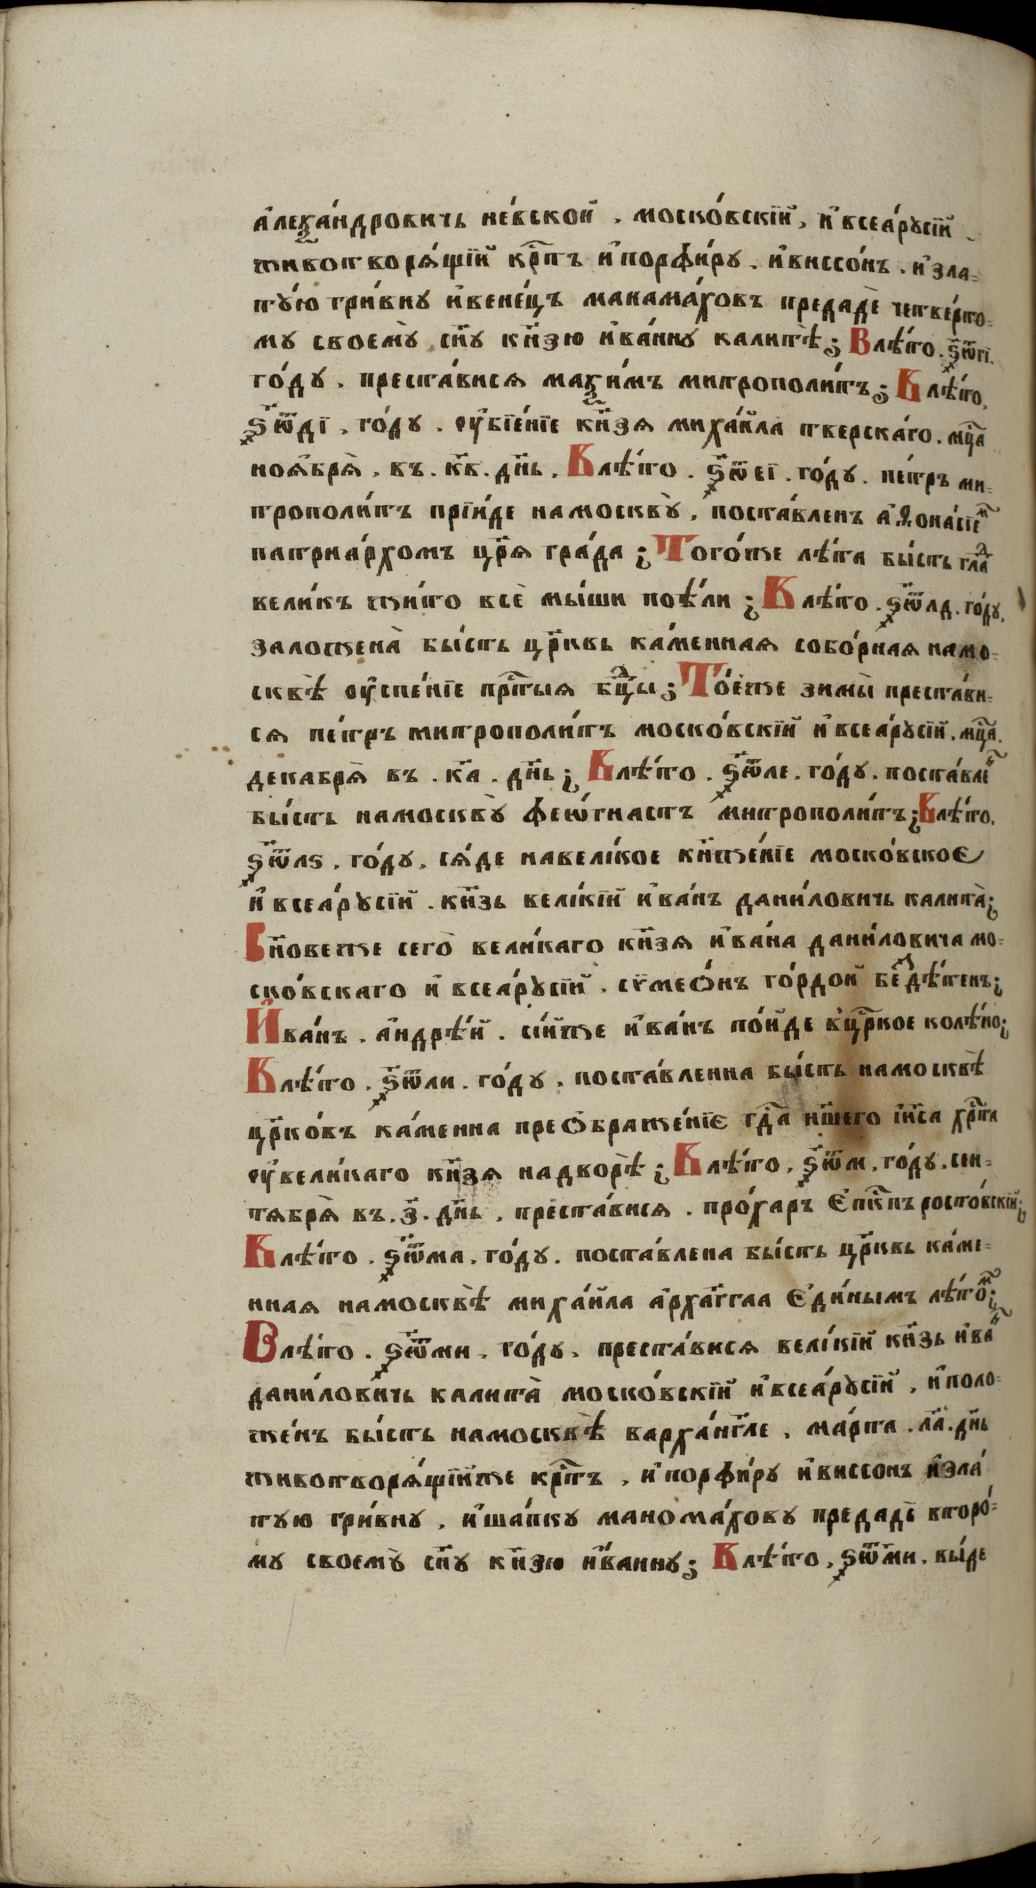 а҆леѯа́ндровичь не́вской . моско́вскїй , и҆ всеа́рꙋсїй
животворѧ́щїй крⷭ҇тъ и҆порфи́ру . и҆виссо́нъ . и҆зла-
тꙋ́ю гри́вну и҆вене́цъ манама́ховъ предадѐ четве́рто-
му своемꙋ̀ сн҃у кн҃зю и҆ва́нну калитѣ̀; Влѣ́то . ҂ѕ҃ѿгі .
го́ду . преста́висѧ маѯи́мъ митрополи́тъ; Влѣ́то ,
҂ѕ҃ѿді . го́ду . ѹ҆бїе́нїе кн҃зѧ миха́йла тверска́го . мцⷭ҇а
ноѧ҆брѧ̀ . въ . к҃в . дн҃ь . Влѣ́то . ҂ѕ҃ѿеі . го́ду . пе́тръ ми-
трополи́тъ прїи́де намосквꙋ̀ , поста́вленъ а҆ѳона́сїеⷨ
патриа́рхомъ цр҃ѧ гра́да ; Того́же лѣ́та бы́сть глаⷣ
великъ жи́то всѐ мы́ши поѣ́ли ; Влѣ́то . ҂ѕ҃ѿлд . го́ду ,
заложена̀ бы́сть цр҃квь ка́менная собо́рная намо-
сквѣ̀ ѹ҆спе́нїе прⷭ҇тыя бцⷣы ; То́еже зимы̀ преста́ви-
сѧ пе́тръ митрополи́тъ моско́вскїй и҆всеа́рꙋсїй . мцⷭ҇а .
декабрѧ̀ въ . к҃а . дн҃ь ; Влѣ́то . ҂ѕ҃ѿле . го́ду . поставлеⷩ
бы́сть намосквꙋ̀ феѡ́гнастъ митрополи́тъ ; Влѣ́то ,
҂ѕ҃ѿлѕ . го́ду , сѧ́де навели́кое кн҃же́нїе моско́вское
и҆ всеа́рꙋсїй . кн҃зь вели́кїй и҆ва́нъ дани́ловичь калита̀ ;
Сн҃овеже сего̀ вели́каго кн҃зя и҆ва́на дани́ловича мо-
ско́вскаго и҆ всеа́рꙋсїй . сѷмео́нъ го́рдой безⷥдѣ́тенъ ;
И҆ва́нъ . а҆ндрѣ́й . сі́йже и҆ва́нъ по́йде вⸯцр҃кое колѣ́но ;
Влѣ́то . ҂ѕ҃ѿли . го́ду . поста́вленна бы́сть намосквѣ̀
цр҃ко́въ ка́менна преѻбраже́нїе гдⷭ҇а нш҃его і҆и҃са хрⷭ҇та
ѹ҆вели́каго кн҃зя надворѣ̀ ; Влѣ́то . ҂ѕ҃ѿм . го́ду . сен-
тѧбрѧ̀ въ . з҃ . дн҃ь . преста́висѧ . про́харъ є҆пⷭ҇кпъ росто́вскїй ;
Влѣ́то . ҂ѕ҃ѿма . го́ду . поставлена бы́сть цр҃квь ка́ме-
нная намосквѣ̀ миха́йла а҆рха́гг҃ла є҆ди́нымъ лѣ́тоⷨ ;
Влѣ́то . ҂ѕ҃ѿми . го́ду . преста́висѧ вели́кїй кн҃зь и҆ваⷩ
дани́ловичь калита̀ моско́вскїй и҆всеа́рꙋсїй , и҆поло-
же́нъ бы́сть намосквѣ̀ варха́нг҃ле , ма́рта . л҃а . дн҃ь
животворѧ́щїйже крⷭ҇тъ , и҆порфи́ру и҆виссонъ и҆зла-
тую гри́вну , и҆ша́пку манома́хову предадѐ второ́-
му своемꙋ̀ сн҃у кн҃зю и҆ва́нну ; Влѣ́то . ҂ѕ҃ѿми . вы́де